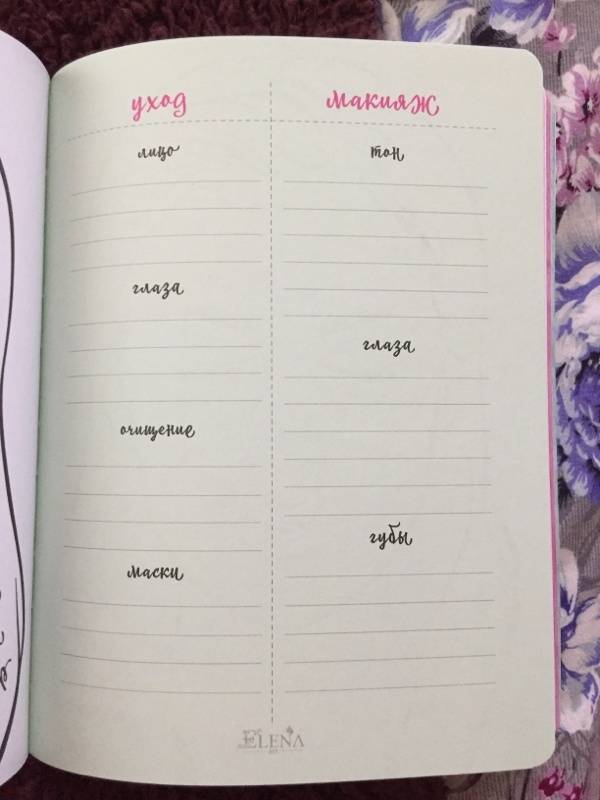 уход
лицо
глаза
очищение
маски
макияж
тон
глаза
губы
ELENA